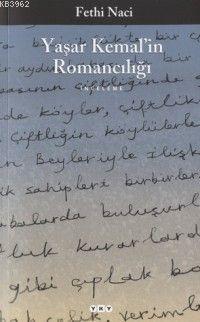 KB3962
Fethi Naci
Yaşar Kemal'in
Romancılığı
İNCELEME
bir ar
aydın
basının çiftliğ
inde köyler, çiftlik
Çiftliğin köylüler
en Beyleriyle ilişk
k sahipleri birbirler
abalarda buluşurl
luk kurarlard
gibi çıplak b
çalılık, verim
YKY